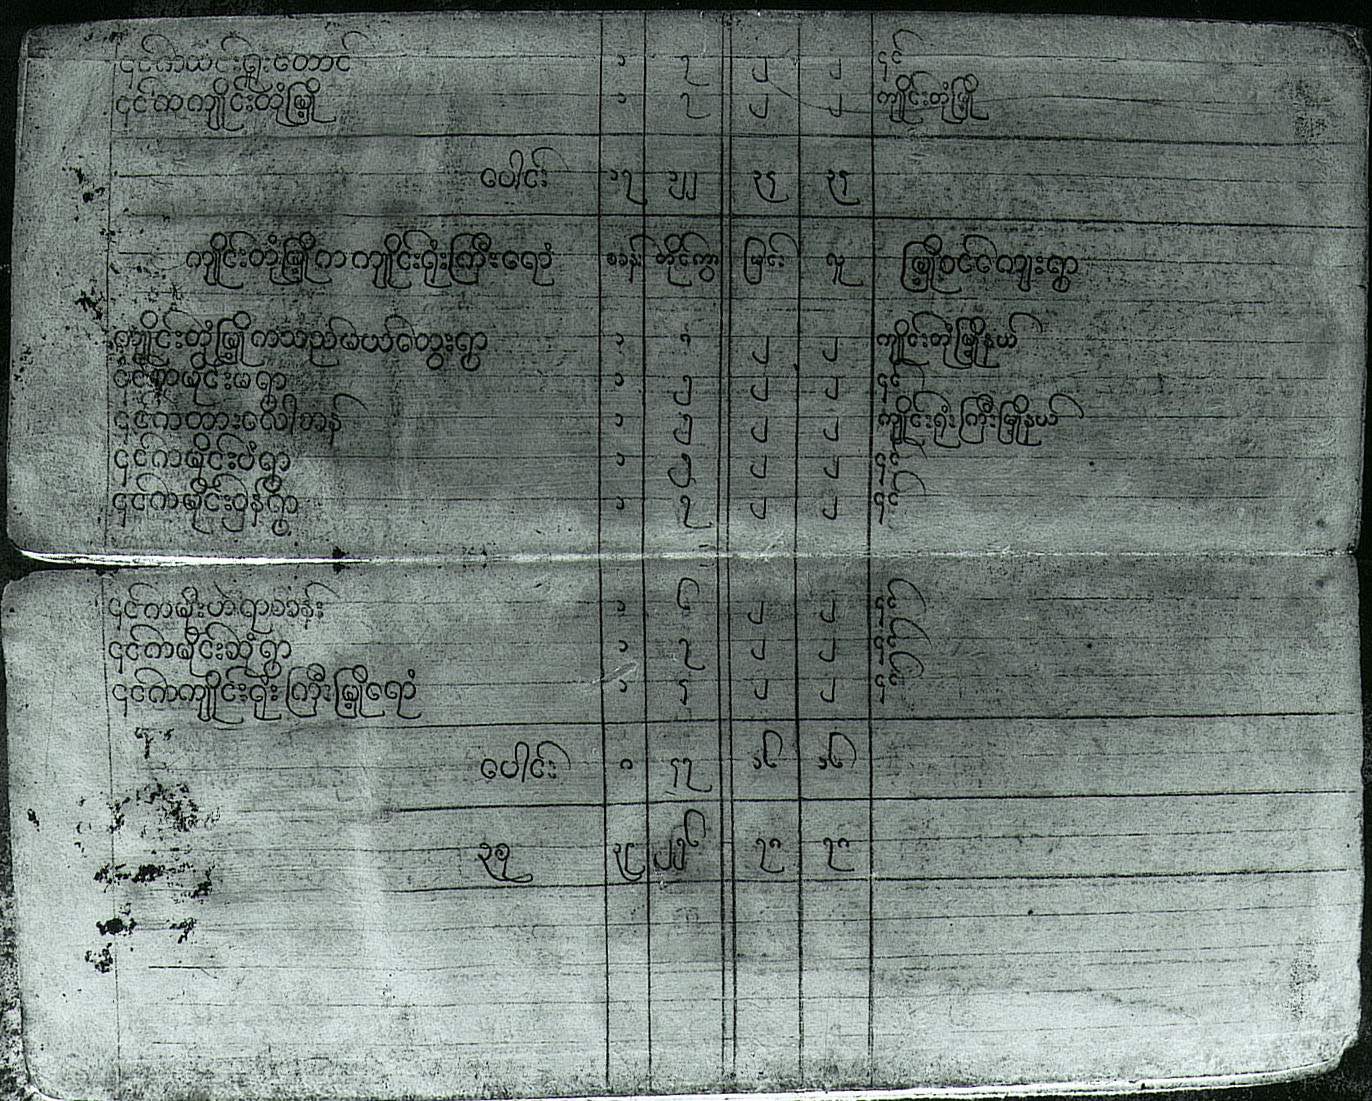 ၎င်းကယင်းရှူးတောင် ၁ ၇ ၂ ၂ ၎င်း
၎င်းကကျိုင်းတုံမြို့ ၁ ၇ ၂ ၂ ကျိုင်းတုံမြို့
ပေါင်း ၁၇ ၃၅ ၃၅
ကျိုင်းတုံမြို့က ကျိုင်းရုံးကြီးရောံ စခန်း တိုင်ကွာ မြင်း လူ မြို့ဝင်ကျေးရွာ
ကျိုင်းတုံမြို့ကသည်မယ်တွေးရွာ ၁ ၂ ၂ ကျိုင်းတုံမြို့နယ်
၎င်းကမိုင်းမရွာ ၁ ၂ ၂ ၎င်း
၎င်းကတားလေါ်ခန် ၁ ၂ ၂ ကျိုင်းရုံးကြီးမြို့နယ်
၎င်းကမိုင်းပံရွာ ၁ ၂ ၂ ၎င်း
၎င်းကမိုင်းဝှန်ရွာ ၁ ၇ ၂ ၂ ၎င်း
၎င်းကမိုးဟဲရာစခန်း ၁ ၆ ၂ ၂ ၎င်း
၎င်းကမိုင်းဆုံရွာ ၁ ၇ ၂ ၂ ၎င်း
၎င်းကကျိုင်းရုံးကြီးမြို့ရောံ ၁ ၅ ၂ ၂ ၎င်း
ပေါင်း ၈ ၅၇ ၁၆ ၁၆
၃စု ၃၉ ၇၈ ၇၈